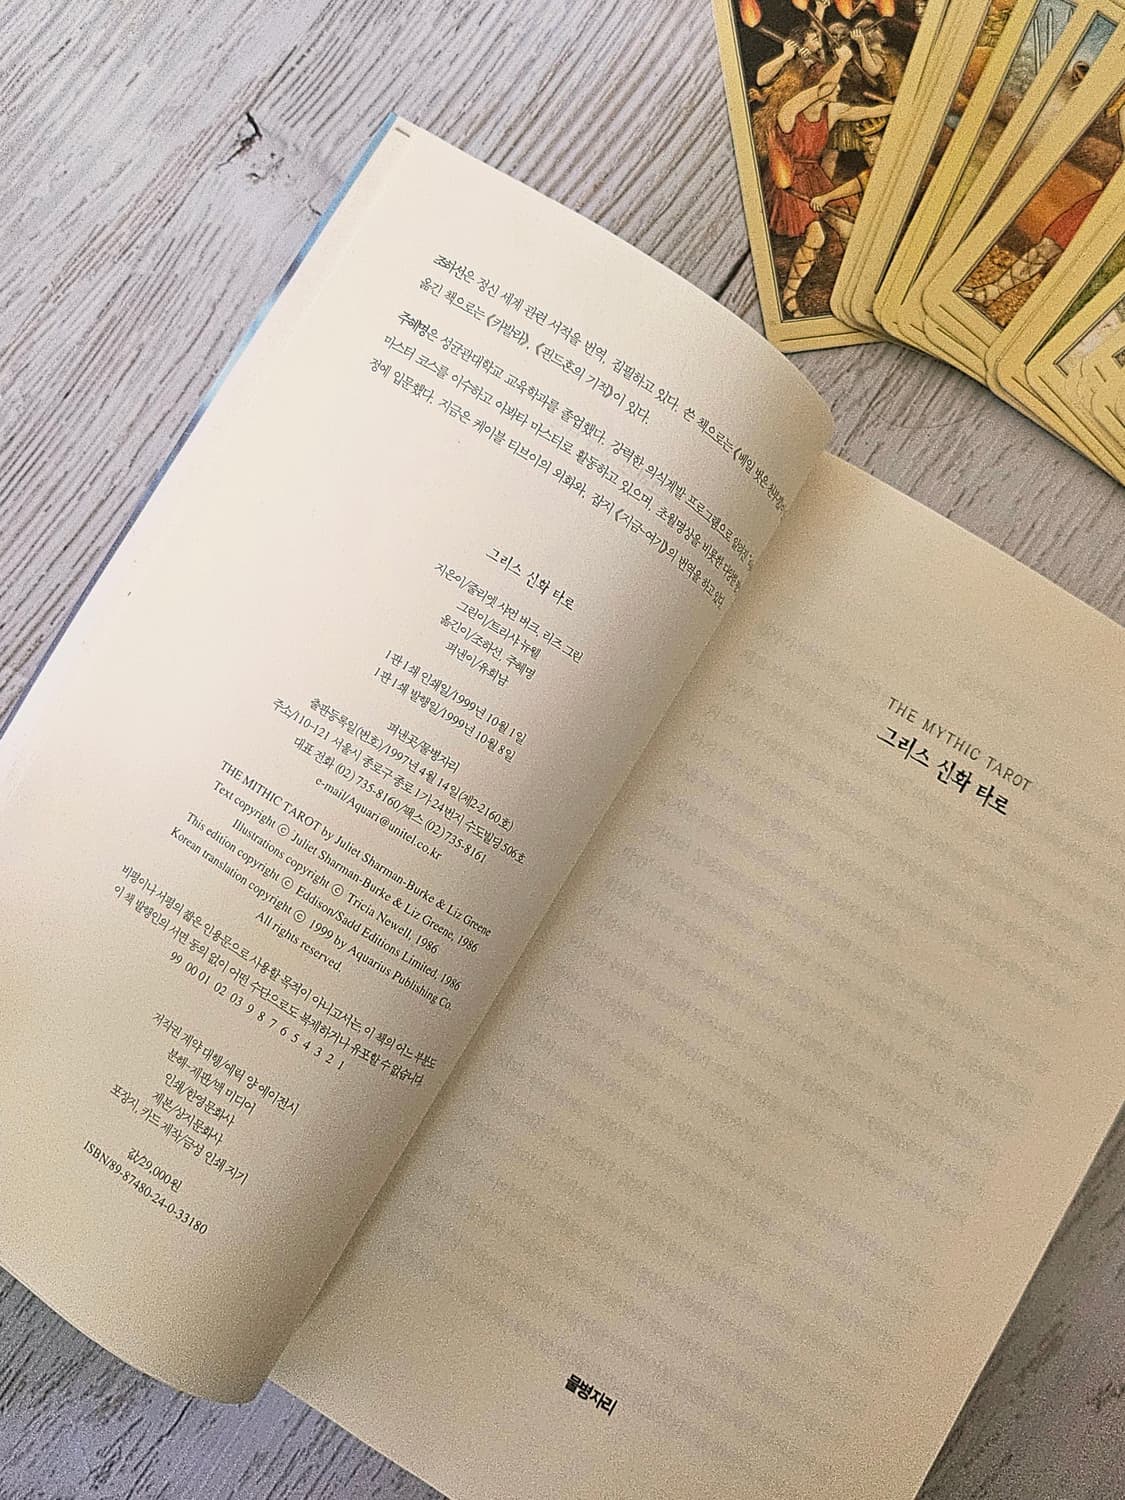 조하선은 정신 세계 관련 서적을 번역, 집필하고 있다. 쓴 책으로는 《베일 벗은 천부경》이
옮긴 책으로는 《카발라》, 《핀드혼의 기적》이 있다.
주혜명은 성균관대학교 교육학과를 졸업했다. 강력한 의식개발 프로그램으로 알려진
마스터 코스를 이수하고 아봐타 마스터로 활동하고 있으며, 초월명상을 비롯한 다양한
정에 입문했다. 지금은 케이블 티브이의 외화와, 잡지 《지금-여기》의 번역을 하고 있다.
그리스 신화 타로
지은이/줄리엣 샤먼 버크, 리즈 그린
그린이/트리샤 뉴웰
옮긴이/조하선, 주혜명
펴낸이/유희남
1판 1쇄 인쇄일/1999년 10월 1일
1판 1쇄 발행일/1999년 10월 8일
펴낸곳/물병자리
출판등록일(번호)/1997년 4월 14일(제2-2160호)
주소/110-121 서울시 종로구 종로 1가 24번지 수도빌딩 506호
대표 전화 (02) 735-8160/팩스 (02) 735-8161
e-mail/Aquari@unitel.co.kr
THE MITHIC TAROT by Juliet Sharman-Burke & Liz Greene
Text copyright ⓒ Juliet Sharman-Burke & Liz Greene, 1986
Illustrations copyright ⓒ Tricia Newell, 1986
This edition copyright ⓒ Eddison/Sadd Editions Limited, 1986
Korean translation copyright ⓒ 1999 by Aquarius Publishing Co.
All rights reserved.
비평이나 서평의 짧은 인용문으로 사용할 목적이 아니고서는, 이 책의 어느 부분도
이 책 발행인의 서면 동의 없이 어떤 수단으로도 복제하거나 유포할 수 없습니다.
99 00 01 02 03 9 8 7 6 5 4 3 2 1
저작권 계약 대행/에릭 양 에이전시
분해-제판/맥 미디어
인쇄/한영문화사
제본/상지문화사
포장지, 카드 제작/금성 인쇄 지기
값/29,000원
ISBN/89-87480-24-0-33180
THE MYTHIC TAROT
그리스 신화 타로
물병자리